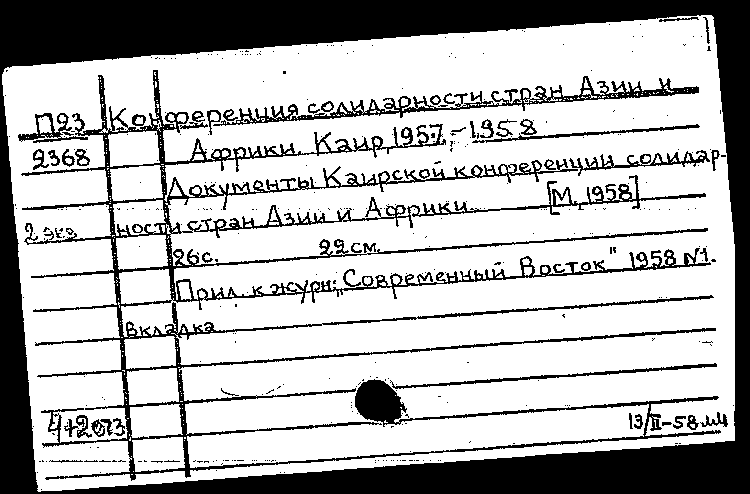 П23 Конференция солидарности стран Азии и
2368 Африки. Каир, 1957,-1958
Документы Каирской конференции солидар-
2 экз ности стран Азии и Африки. [М., 1958]
26с. 22см.
Прил. к журн: „Современный Восток" 1958 №1.
Вкладка
13/II-58